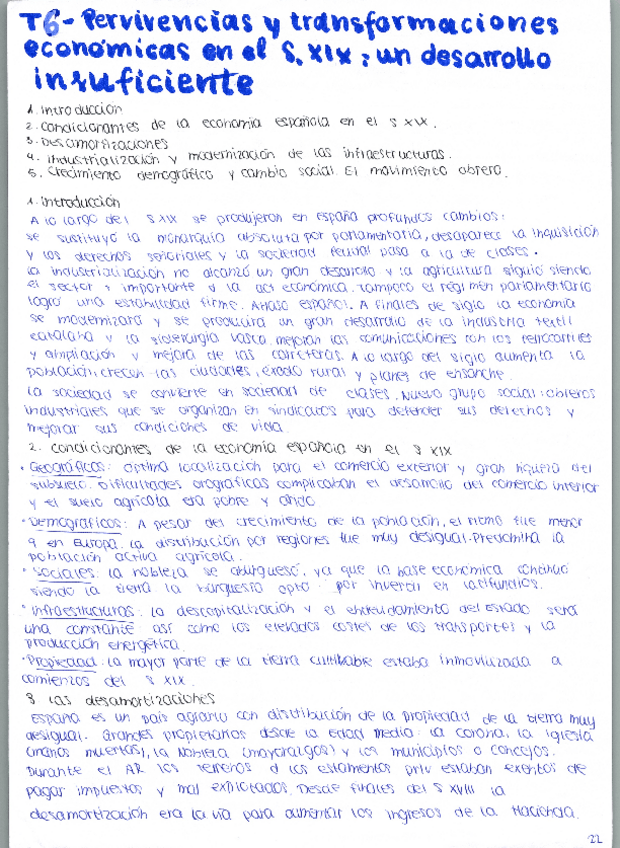 T6- Pervivencias y transformaciones
económicas en el S. XIX: un desarrollo
insuficiente
1. Introducción
2. Condicionantes de la economía española en el S XIX.
3. Desamortizaciones
4. Industrialización y modernización de las infraestructuras.
5. Crecimiento demográfico y cambio social. El movimiento obrero.
1. Introducción
A lo largo del S XIX se produjeron en España profundos cambios:
se sustituyó la monarquía absoluta por parlamentaria, desaparece la inquisición
y los derechos señoriales y la sociedad feudal pasa a la de clases.
La industrialización no alcanzó un gran desarrollo y la agricultura siguió siendo
el sector + importante d la act económica. Tampoco el régimen parlamentario
logró una estabilidad firme. Atraso español. A finales de siglo la economía
se modernizará y se producirá un gran desarrollo de la industria textil
catalana y la siderurgia vasca, mejoran las comunicaciones con los ferrocarriles
y ampliación y mejora de las carreteras. A lo largo del siglo aumenta la
población, crecen las ciudades, éxodo rural y planes de ensanche.
La sociedad se convierte en sociedad de clases. Nuevo grupo social: obreros
industriales que se organizan en sindicatos para defender sus derechos y
mejorar sus condiciones de vida.
2. Condicionantes de la economía española en el S XIX
· Geográficos: óptima localización para el comercio exterior y gran riqueza del
subsuelo. Dificultades orográficas complicaban el desarrollo del comercio interior
y el suelo agrícola era pobre y árido
· Demográficos: A pesar del crecimiento de la población, el ritmo fue menor
q en Europa. La distribución por regiones fue muy desigual. Predomina la
población activa agrícola.
· Sociales: la nobleza se aburguesó, ya que la base económica continuó
siendo la tierra. La burguesía optó por invertir en latifundios.
· Infraestructuras: la descapitalización y el endeudamiento del Estado será
una constante así como los elevados costes de los transportes y la
producción energética.
· Propiedad: la mayor parte de la tierra cultivable estaba inmovilizada a
comienzos del S XIX.
3 Las desamortizaciones
España es un país agrario con distribución de la propiedad de la tierra muy
desigual. Grandes propietarios desde la Edad Media: la corona, la Iglesia
(manos muertas), la Nobleza (mayorazgos) y los municipios o concejos.
Durante el AR los terrenos d los estamentos priv estaban exentos de
pagar impuestos y mal explotados. Desde finales del S XVIII la
desamortización era la vía para aumentar los ingresos de la Hacienda.
22